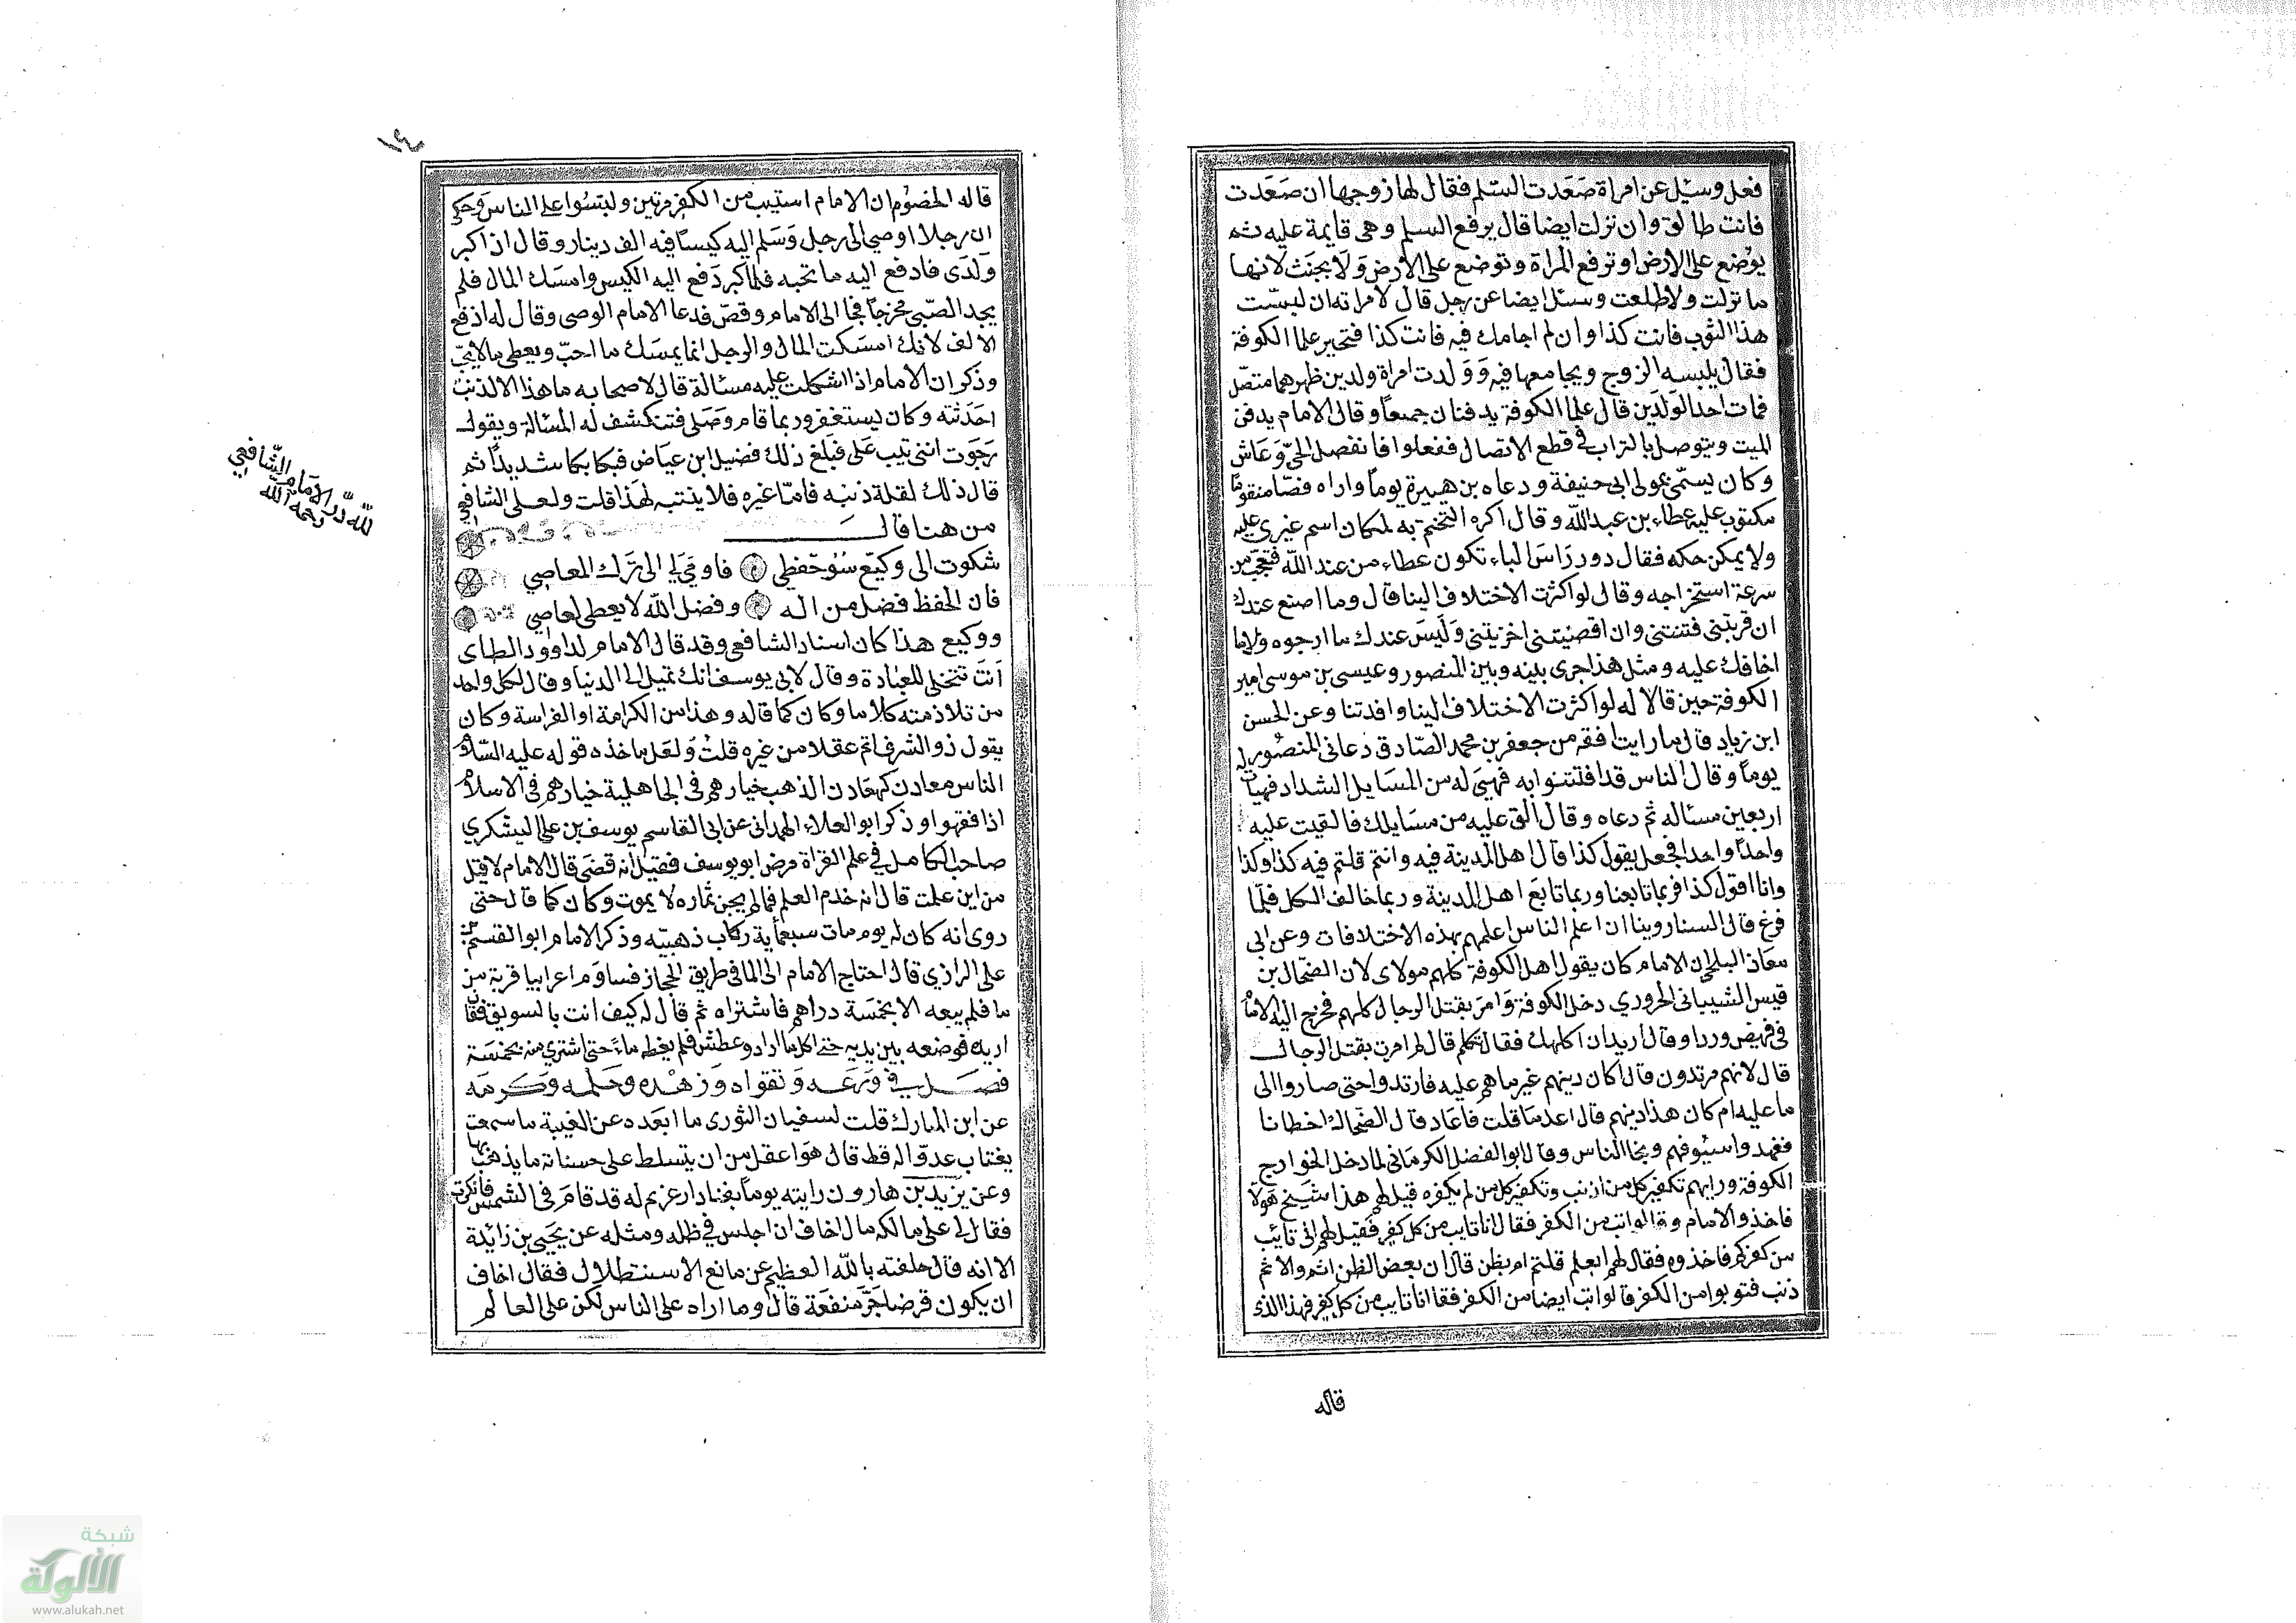 فعل وسئل عن امراة صَعَدت السّلم فقال لها زوجها ان صَعَدت
فانت طالق وان نزلت ايضا قال يرفع السلم وهى قايمة عليه ثم
يوُضع على الارض او ترفع المراة وتوضع على الارض وَلَا يحنث لانها
ما نزلت ولا طلعت وسئل ايضا عن رجل قال لامراته ان لبست
هذا الثوب فانت كذا وان لم اجامعك فيه فانت كذا فتحير علما الكوفة
فقال يلبسه الزوج ويجامعها فيه وَوَلدت امراة ولدين ظهرهما متصل
فمات احد الوَلدَين قال علما الكوفة يدفنان جمعاً وقال الامام يدفن
الميت ويتوصل بالتراب فى قطع الاتصال ففعلوا فانفصل الحىّ وَعَاش
وكان يسمّى بمولى ابى حنيفة ودعاه بن هبيرة يوماً واراه فصّا منقوشا
مكتوب عليه عطاء بن عبد اللّه وقال اكره التختم به لمكان اسم غيرى عليه
ولا يمكن حكه فقال دور رَاسَ الباء تكون عطاء من عند اللّه فتعجّب من
سرعة استخراجه وقال لو اكثرت الاختلاف الينا قال وما اصنع عندك
ان قربتنى فتنتنى وان اقصيتنى اخزيتنى وَليسَ عندك ما ارجوه ولا ما
اخافك عليه ومثل هذا جرى بينه وبين المنصور وعيسى بن موسى امير
الكوفة حين قالا له لو اكثرت الاختلاف الينا وافدتنا وعن الحسن
ابن زياد قال ما رايت افقه من جعفر بن محمد الصّادق دعانى المنصُور له
يوماً وقال الناس قد افتتنوا به فهيئ له من المسايل الشداد فهيأت
اربعين مسئاله ثم دعاه وقال الق عليه من مسَايلك فالقيت عليه
واحداً واحدا فجعل يقول كذا قال اهل المدينة فيه وانتم قلتم فيه كذا وكذا
وانا اقول كذا فربما تابعنا وربما تابعَ اهل المدينة وربما خالف الكل فلمّا
فرغ قال السنا روينا ان اعلم الناس اعلمهم بهذه الاختلافات وعن ابى
معَاذ البلخى ان الامام كان يقول اهل الكوفة كلهم مولاى لان الضحّاك بن
قيس الشيبانى الحرورى دخل الكوفة وَامر بقتل الرجال كلهم فخرج اليه الامام
فى قميص وردا وقال اريد ان اكلمك فقال تكلم قال لم امرت بقتل الرجال
قال لانهم مرتدون قال اكان دينهم غير ما هم عليه فارتدوا حتى صاروا الى
ما عليه ام كان هذا دينهم قال اعد مَا قلت فاعَاد قال الضحّاك اخطانا
فغمدوا سيُوفهم ونجا الناس وقال ابو الفضل الكرمانى لما دخل الخوارج
الكوفة ورايهم تكفير كل من اذنب وتكفير كل من لم يكفره قيل لهم هذا شيخ هولا
فاخذو الامام وقالوا تب من الكفر فقال انا تايب من كل كفر فقيل لهم انى تائب
من كفركم فاخذوه فقال لهم ابعلم قلتم ام بظن قال ان بعض الظن اثم والاثم
ذنب فتوبوا من الكفر قالوا تب ايضا من الكفر فقا انا تايب من كل كفر فهذا الذى
قاله
١٤
قاله الخصُوم ان الامام استتيب من الكفر مرتين ولبّسُوا على الناس وَحكى
ان رجلا اوصى الى رجل وَسَلم اليه كيسًا فيه الف دينار وقال اذا كبر
وَلدَى فادفع اليه ما تحبه فلما كبر دَفع اليه الكيس وامسَك المال فلم
يجد الصّبى مخرَجاً فجا الى الامام وقصّ فدعا الامام الوصى وقال له ادفع
الالف لانك امسَكت المال والرجل انما يمسَك ما احبّ ويعطى ما لا يحبّ
وذكر ان الامام اذا اشكلت عليه مسئالة قال لاصحابه ما هذا الا لذنب
احدَثته وكان يستغفر وربما قام وصَلى فتنكشف له المسئالة ويقول
رجَوت اننى تيب عَلى فبلغ ذلك فضيل ابن عيَاض فبكا بكا شديداً ثم
قال ذلك لقلة ذنبه فامّا غيره فلا ينتبه لهَذا قلت ولعَلى الشافعى
من هنا قال
شكوت الى وكيّع سُوْحفظى فاومَى لى الى تَرك المعاصي
فان الحفظ فضل من اله وفضل اللّه لا يعطى لعاصي
ووكيع هذا كان اسناد الشافعى وقد قال الامام لداوود الطاى
اَنتَ تتخلى للعبَادة وقال لابى يوسف انك تميل الى الدنيا وقال لكل واحد
من تلاذمته كلاما وكان كما قاله وهذا من الكرامة او الفراسة وكان
يقول ذو الشرف اتم عقلا من غيره قلتُ وَلعَل ماخذه قوله عليه السّلام
الناس معادن كمعَادن الذهب خيارهم فى الجاهلية خيارهم فى الاسلام
اذا فقهوا وذكر ابو العلاء الهمدانى عن ابى القاسم يوسف بن على اليشكرى
صاحب الكامل فى علم القراة مرض ابو يوسف فقيل انه قضى قال الامام لا قيل
من اين علمت قال انه خدم العلم فما لم يجن ثماره لا يموت وكان كما قال حتى
روى انه كان له يوم مات سبعماية ركاب ذهبيّه وذكر الامام ابو القسم بن
على الرازي قال احتاج الامام الى الما فى طريق الحجاز فساوَم اعرابيا قربة من
ما فلم يبعه الا بخمسَة دراهم فاشتراه ثم قال له كيف انت بالسويق فقال
اريده فوضعه بين يديه حتى اكل ما اراد وعطش فلم يعْطِه ماءً حتى اشترى منه بخمسَة
فصل في وَرَعه وَتقواه وَزهْده وَحلمه وَكرمه
عن ابن المبارك قلت لسفيان الثورى ما ابعَده عن الغيبة ما سمعت
يغتاب عدوّا له قط قال هوَ اعقل من ان يتسلط على حسناته ما يذهب بها
وعن يزيد بن هارون رايته يوماً بفنا دار غريم له قد قامَ فى الشمس فانكرت
فقال لى على مالكه مال اخاف ان اجلس فى ظله ومثله عن يحيى بن زائدة
الا انه قال حلفته باللّه العظيم عن مانع الاستظلال فقال اخاف
ان يكون قرضا جَرَّ منفعَة قال وما اراه على الناس لكن على العالم
للّه درّ الامَام الشّافعي
رحمه اللّه
شبكة
الألوكة
www.alukah.net